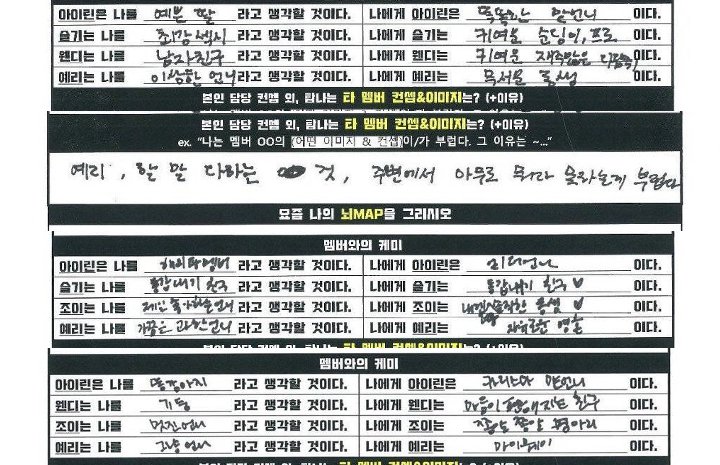 아이린은 나를 예쁜 딸 라고 생각할 것이다. 나에게 아이린은 똑똑한 맏언니 이다.
슬기는 나를 최강 섹시 라고 생각할 것이다. 나에게 슬기는 귀여운 순딩이, 프로 이다.
웬디는 나를 남자친구 라고 생각할 것이다. 나에게 웬디는 귀여운 재주많은 다람쥐 이다.
예리는 나를 이상한 언니 라고 생각할 것이다. 나에게 예리는 무서운 동생 이다.
본인 담당 컨셉 외, 탐나는 타 멤버 컨셉&이미지는? (+이유)
본인 담당 컨셉 외, 탐나는 타 멤버 컨셉&이미지는? (+이유)
ex. “나는 멤버 OO의 (어떤 이미지 & 컨셉)이/가 부럽다. 그 이유는 ~...”
예리, 할 말 다하는 것, 주변에서 아무도 뭐라 못하는게 부럽다
요즘 나의 뇌MAP을 그리시오
멤버와의 케미
아이린은 나를 해피 라고 생각할 것이다. 나에게 아이린은 이다.
슬기는 나를 동갑내기 친구 라고 생각할 것이다. 나에게 슬기는 동갑내기 친구♥ 이다.
조이는 나를 제일 언니 라고 생각할 것이다. 나에게 조이는 동생♥ 이다.
예리는 나를 가끔은 과한언니 라고 생각할 것이다. 나에게 예리는 자유로운 영혼 이다.
본인 담당 컨셉 외, 탐나는 타 멤버 컨셉&이미지는? (+이유)
멤버와의 케미
아이린은 나를 똥강아지 라고 생각할 것이다. 나에게 아이린은 카리스마 맏언니 이다.
웬디는 나를 기둥 라고 생각할 것이다. 나에게 웬디는 마음이 편해지는 친구 이다.
조이는 나를 멋진 언니 라고 생각할 것이다. 나에게 조이는 쫑알쫑알 병아리 이다.
예리는 나를 그냥 언니 라고 생각할 것이다. 나에게 예리는 마이웨이 이다.